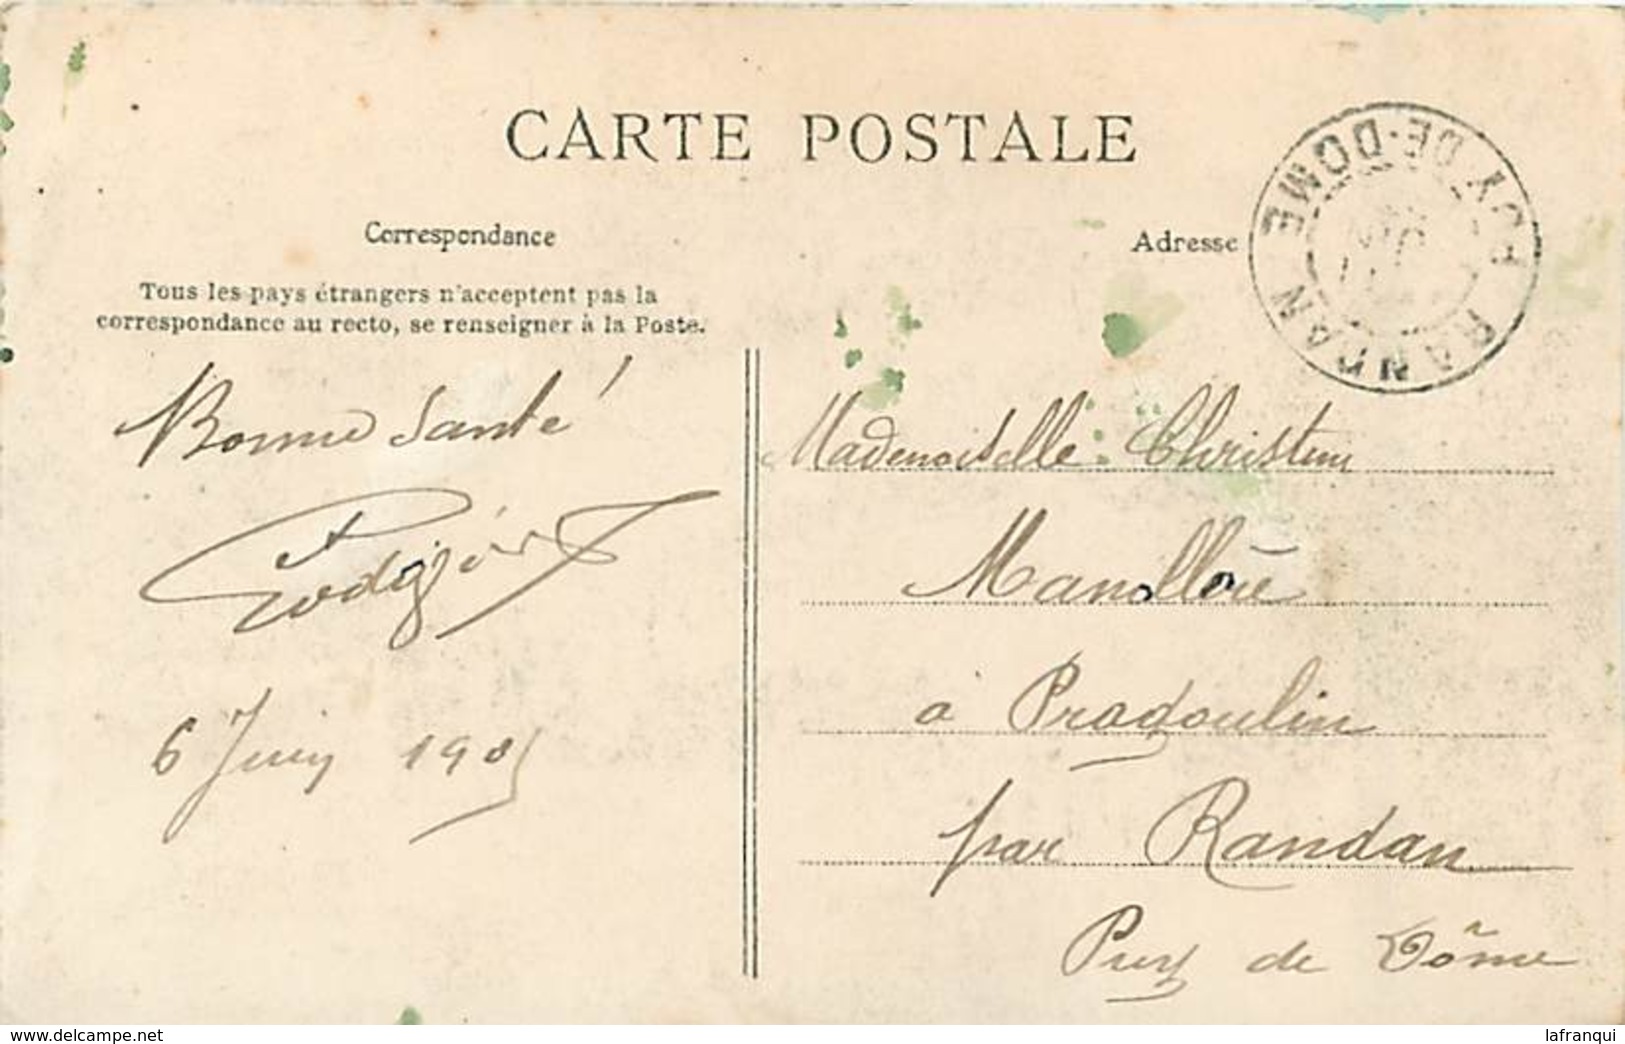 CARTE POSTALE
Correspondance
Adresse
Tous les pays étrangers n'acceptent pas la
correspondance au recto, se renseigner à la Poste.
Bonne Santé
6 Juin 1905
Mademoiselle Christine
à Pragoulin
par Randan
Puy de Dôme
RANDAN PUY-DE-DOME
www.delcampe.net
lafranqui